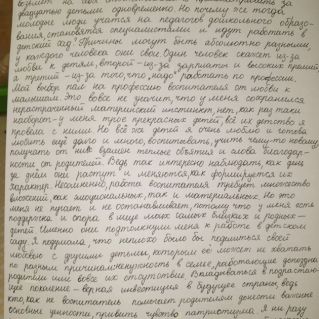 двадцатью детьми одновременно. Но почему же тогда
молодые люди учатся на педагогов дошкольного образо-
вания, становятся специалистами и идут работать в
детский сад? Причины могут быть абсолютно разными,
у каждого человека они свои. Один человек скажет из-за
любви к детям, второй - из-за зарплаты и высоких премий,
а третий - из-за того, что "надо" работать по профессии.
Мой выбор пал на профессию воспитателя от любви к
малышам. Это вовсе не значит, что у меня сохранился
нерастраченный материнский инстинкт, нет, как раз таки
наоборот - у меня трое прекрасных детей, всё их детство я
провела с ними. Но всё же детей я очень люблю и готова
любить ещё долго и много, воспитывать, учить чему-то новому
получать от них взамен теплые объятия и слова благодар-
ности от родителей. Ведь так интересно наблюдать, как день
за днём они растут и меняются, как формируется их
характер. Несомненно, работа воспитателя требует множество
вложений, как эмоциональных, так и материальных. Но это
меня не пугает и не останавливает, потому что у меня есть
поддержка и опора в лице моих самых близких и родных -
детей. Именно они подтолкнули меня к работе в детском
саду. Я подумала, что неплохо было бы поделиться своей
любовью с другими детьми, которым её может не хватать
по разным причинам: ненужность в семье, работающие допоздна
родители или вовсе их отсутствие. Вкладываться в подрастаю-
щее поколение - верная инвестиция в будущее страны, ведь
кто, как не воспитатель поможет родителям донести важные
основные ценности, привить чувство патриотизма. Я ни разу